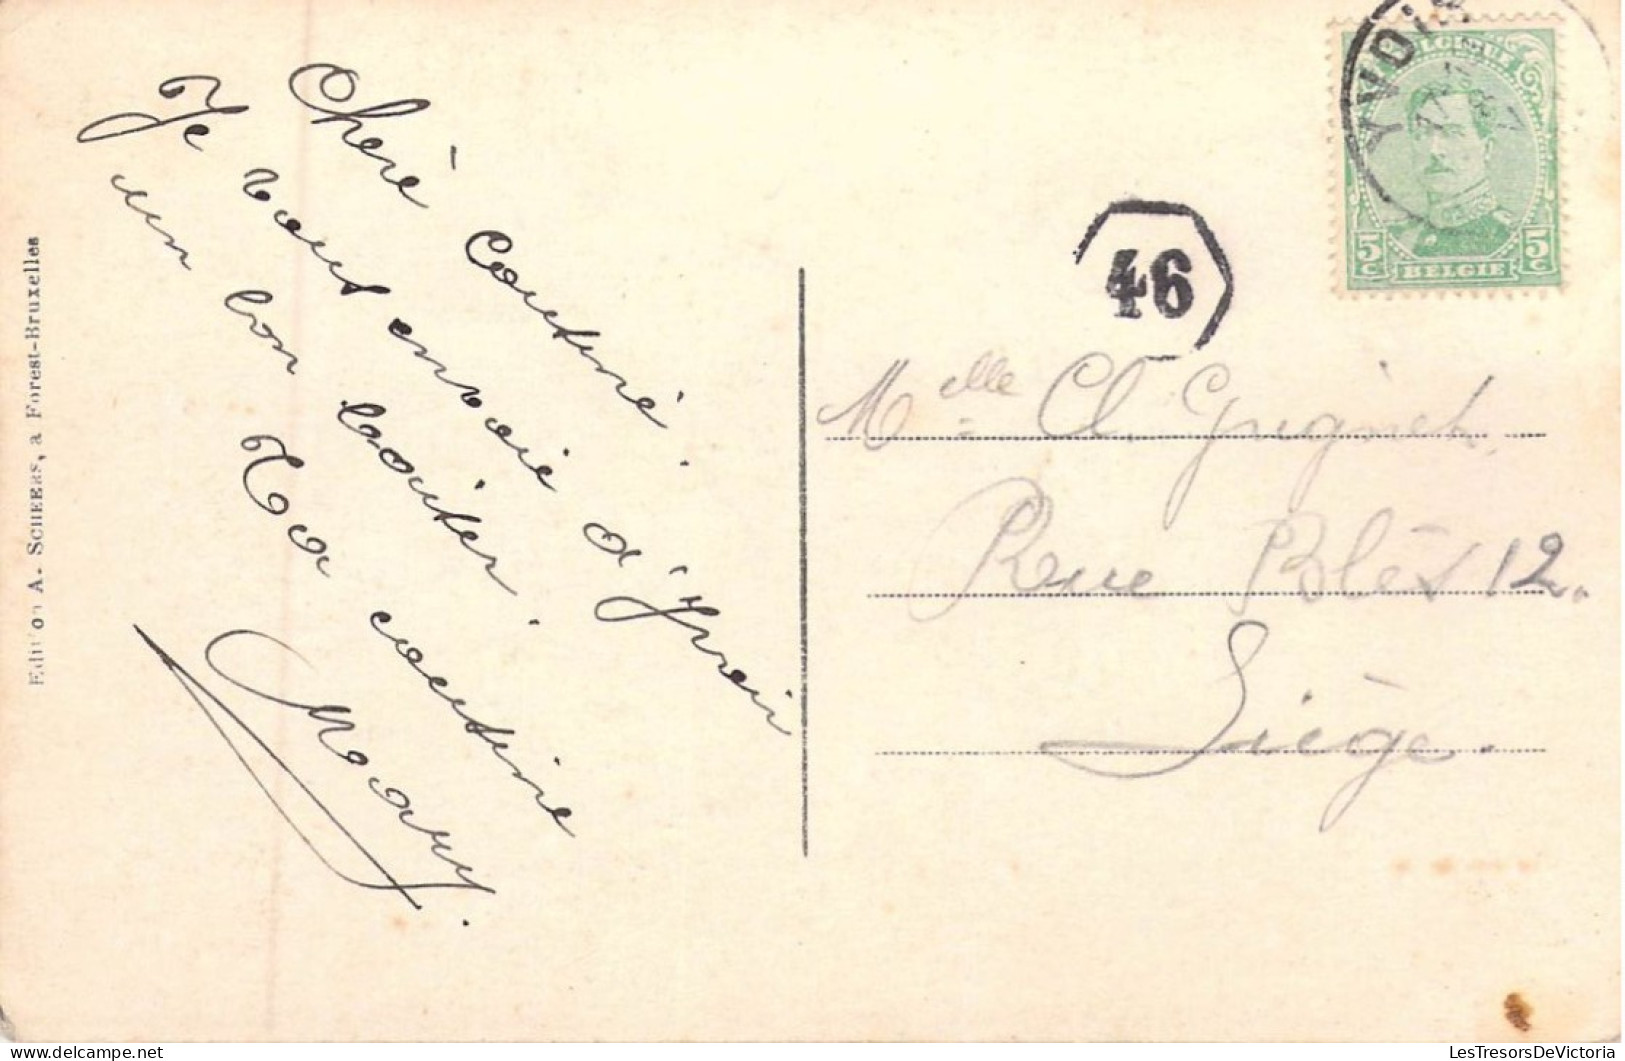 Chère Cousine.
Je vous envoie d'Yvoir
un bon baiser.
Ta cousine
Mary.
Edition A. SCHEERS, a Forest-Bruxelles
YVOIR
BELGIQUE
5 C
5 C
BELGIE
46
Melle Cl. Grignet
Rue Blès 12.
Liège.
LesTresorsDeVictoria